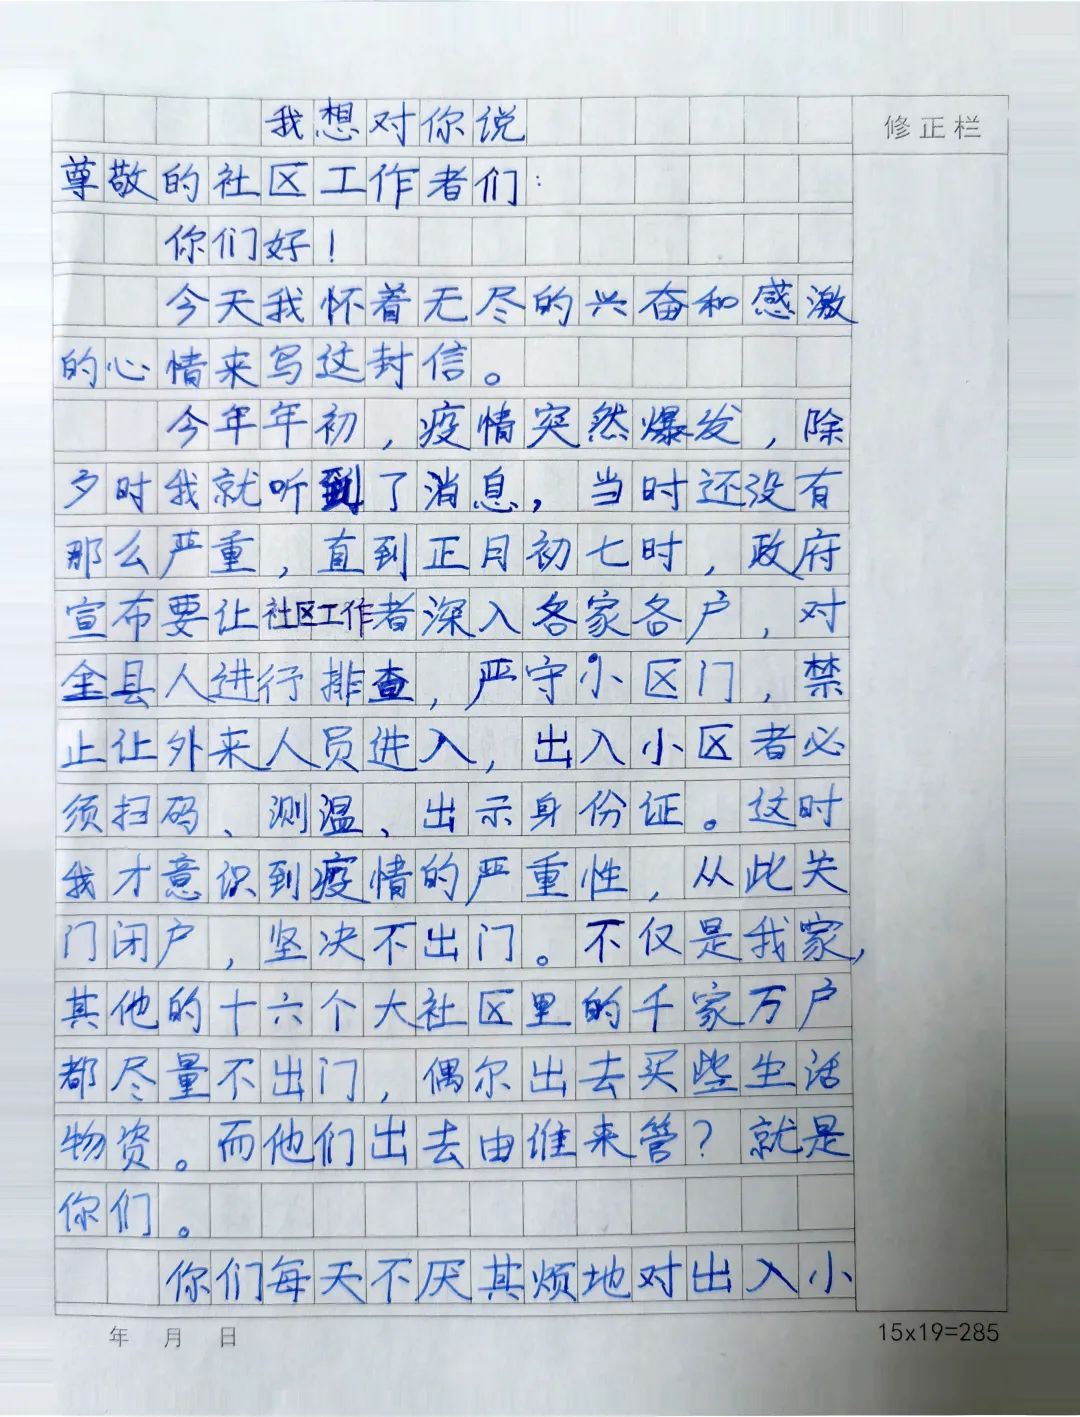 我想对你说
修正栏
尊敬的社区工作者们:
你们好!
今天我怀着无尽的兴奋和感激
的心情来写这封信。
今年年初,疫情突然爆发,除
夕时我就听到了消息,当时还没有
那么严重,直到正月初七时,政府
宣布要让社区工作者深入各家各户,对
全县人进行排查,严守小区门,禁
止让外来人员进入,出入小区者必
须扫码、测温、出示身份证。这时
我才意识到疫情的严重性,从此关
门闭户,坚决不出门。不仅是我家,
其他的十六个大社区里的千家万户
都尽量不出门,偶尔出去买些生活
物资。而他们出去由谁来管?就是
你们。
你们每天不厌其烦地对出入小
年 月 日
15x19=285